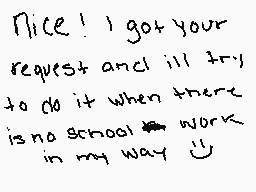 Nice! I got your
request and ill try
to do it when there
is no school work
in my way